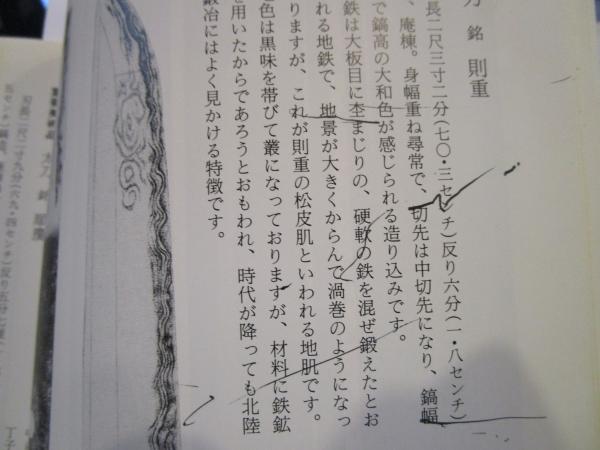 刀 銘 則重
長二尺三寸二分(七〇・三センチ)反り六分(一・八センチ)
、庵棟。身幅重ね尋常で、切先は中切先になり、鎬幅
で鎬高の大和色が感じられる造り込みです。
鉄は大板目に杢まじりの、硬軟の鉄を混ぜ鍛えたとお
れる地鉄で、地景が大きくからんで渦巻のようになっ
りますが、これが則重の松皮肌といわれる地肌です。
色は黒味を帯びて叢になっておりますが、材料に鉄鉱
を用いたからであろうとおもわれ、時代が降っても北陸
鍛冶にはよく見かける特徴です。
刃長二尺二寸九分(六九・四センチ)反り五分